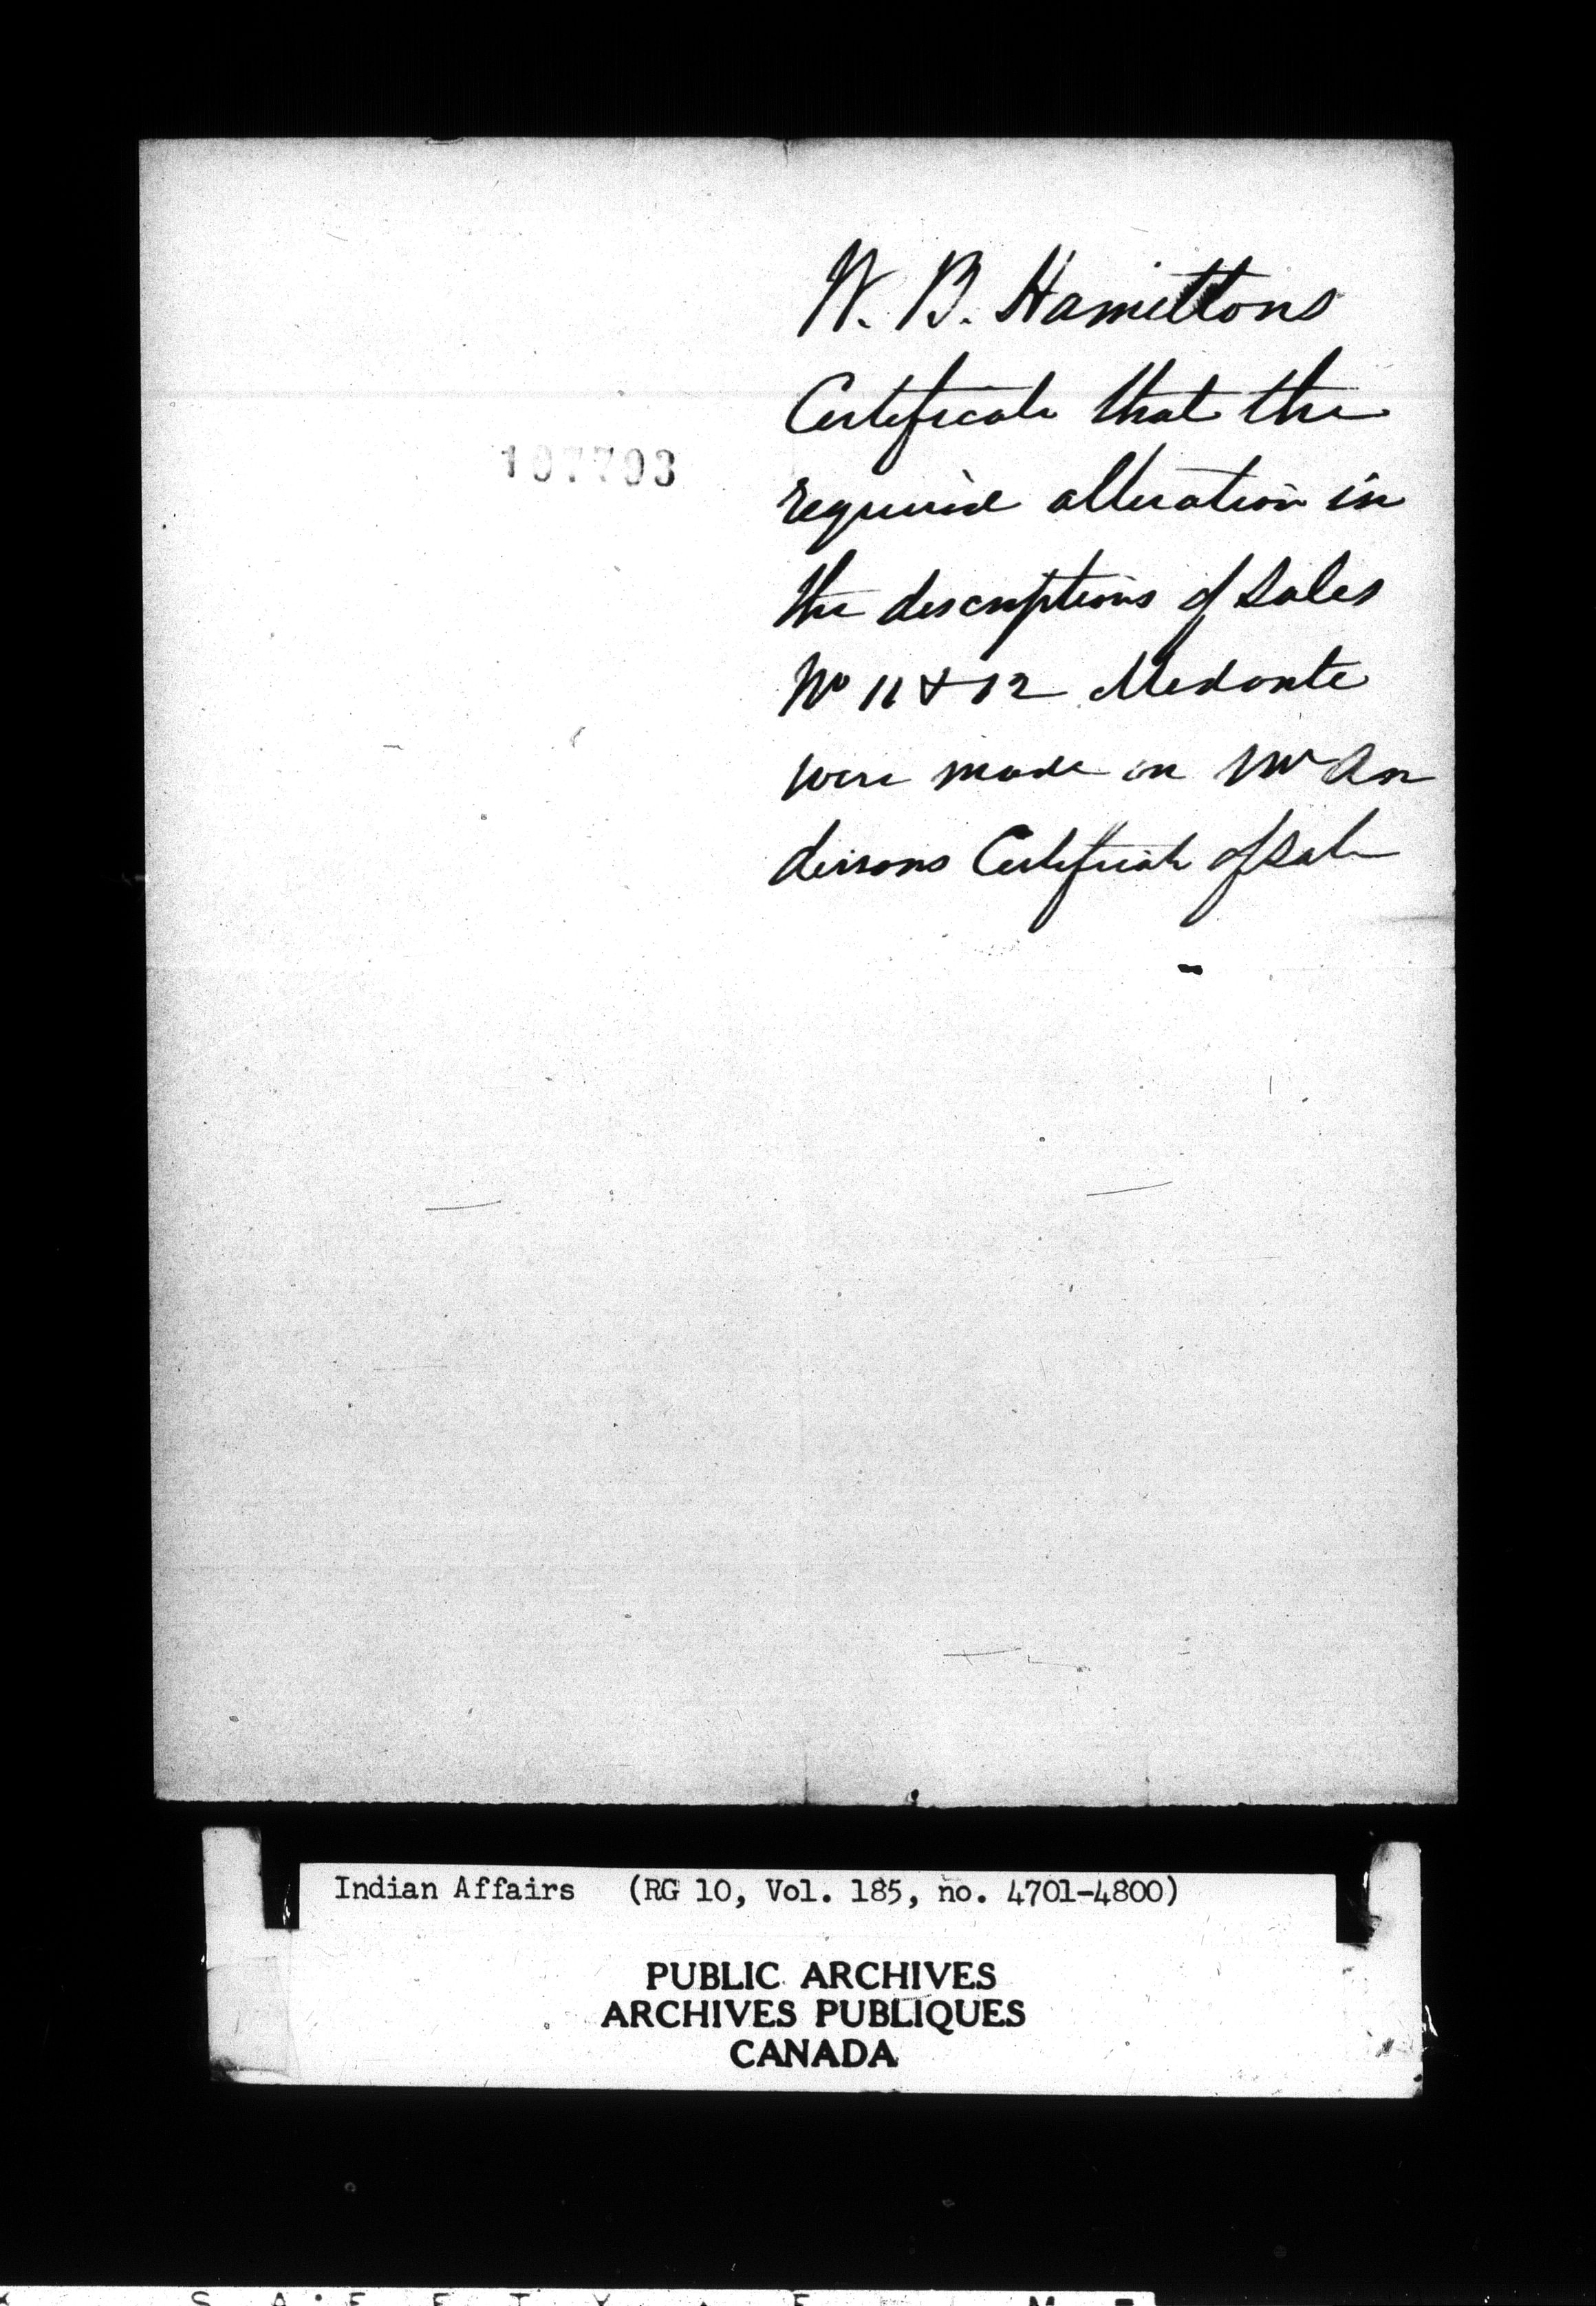 W. B. Hamiltons
Certificate that the
required alteration in
the descriptions of Sales
No 11 & 12 Medonte
were made on Mr An
dersons Certificate of Sale
107703
Indian Affairs (RG 10, Vol. 185, no. 4701-4800)
PUBLIC ARCHIVES
ARCHIVES PUBLIQUES
CANADA